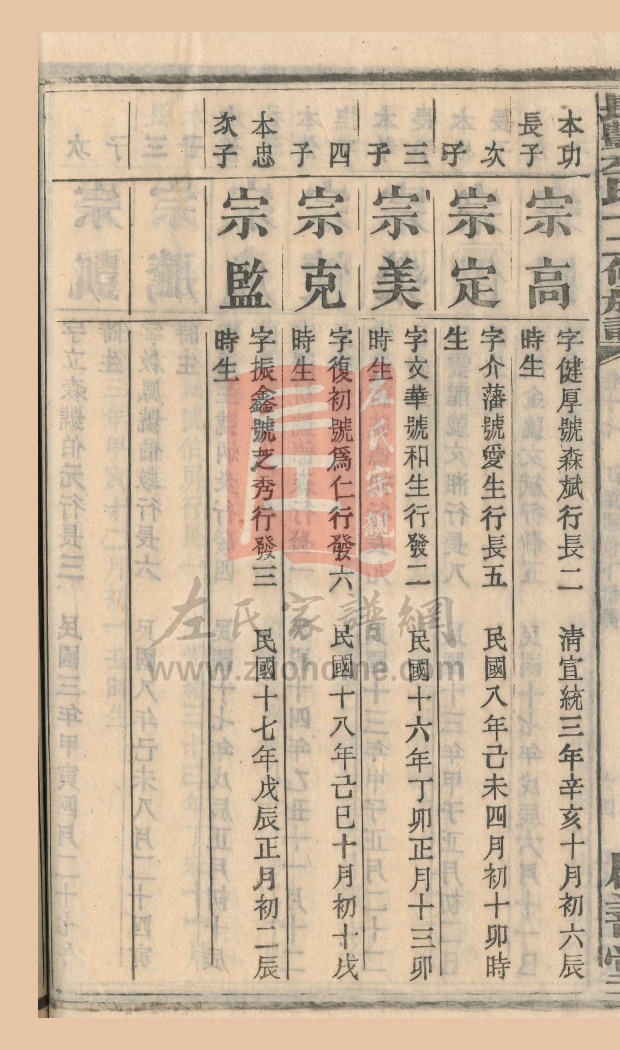 本功
長子
宗高
字健厚號森斌行長二 清宣統三年辛亥十月初六辰
時生
次子
宗定
字介藩號愛生行長五 民國八年己未四月初十卯時
生
三子
宗美
字文華號和生行發二 民國十六年丁卯正月十三卯
時生
四子
宗克
字復初號爲仁行發六 民國十八年己巳十月初十戌
時生
本忠
次子
宗監
字振鑫號芝秀行發三 民國十七年戊辰正月初二辰
時生
左氏家譜網
www.zuohome.com